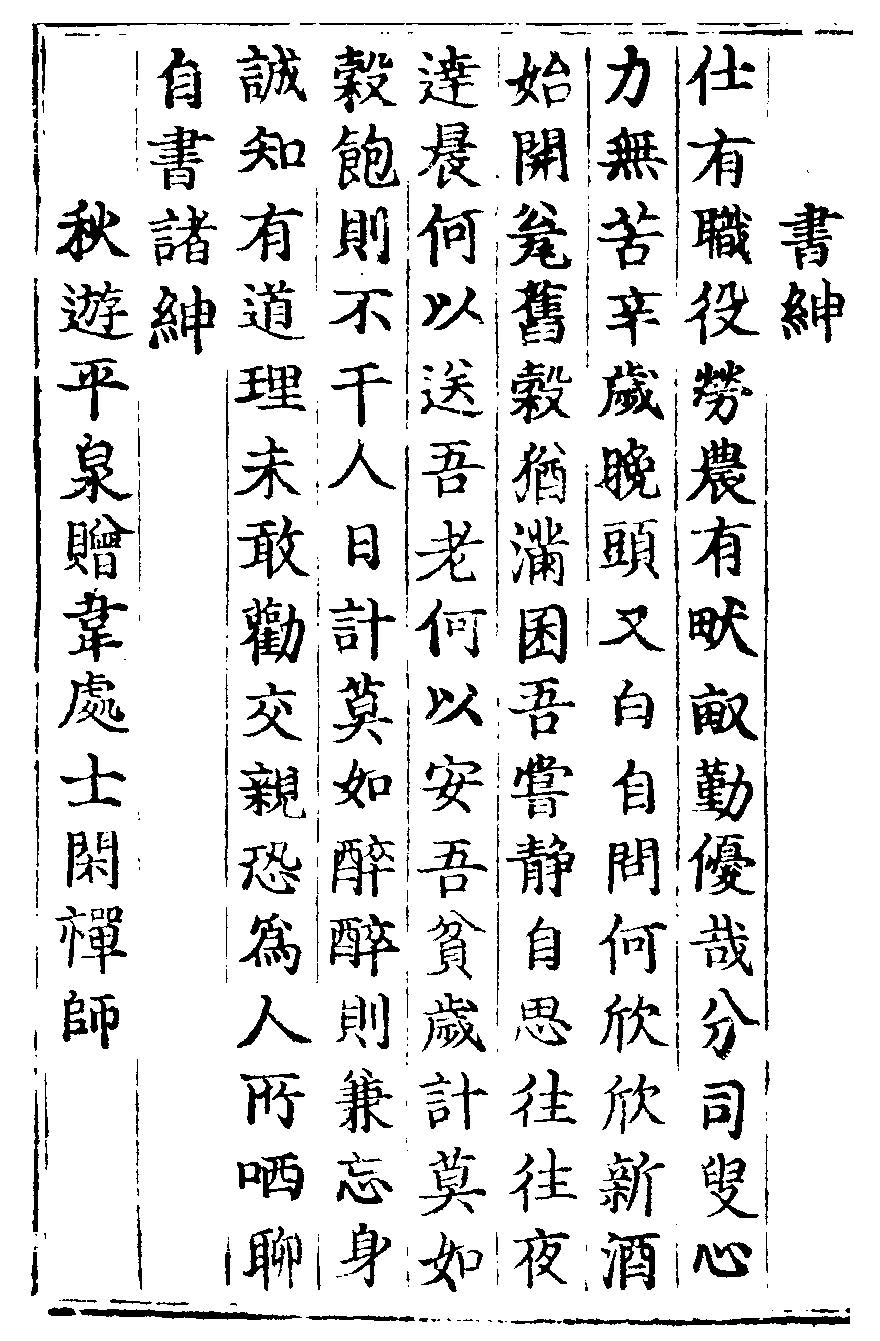 書紳
仕有職役勞農有畎畝勤優哉分司叟心
力無苦辛歲晚頭又白自問何欣欣新酒
始開瓮舊穀猶滿囷吾嘗静自思往往夜
達晨何以送吾老何以安吾貧歲計莫如
穀飽則不干人日計莫如醉醉則兼忘身
誠知有道理未敢勸交親恐爲人所哂聊
自書諸紳
秋遊平泉贈韋處士閑禪師